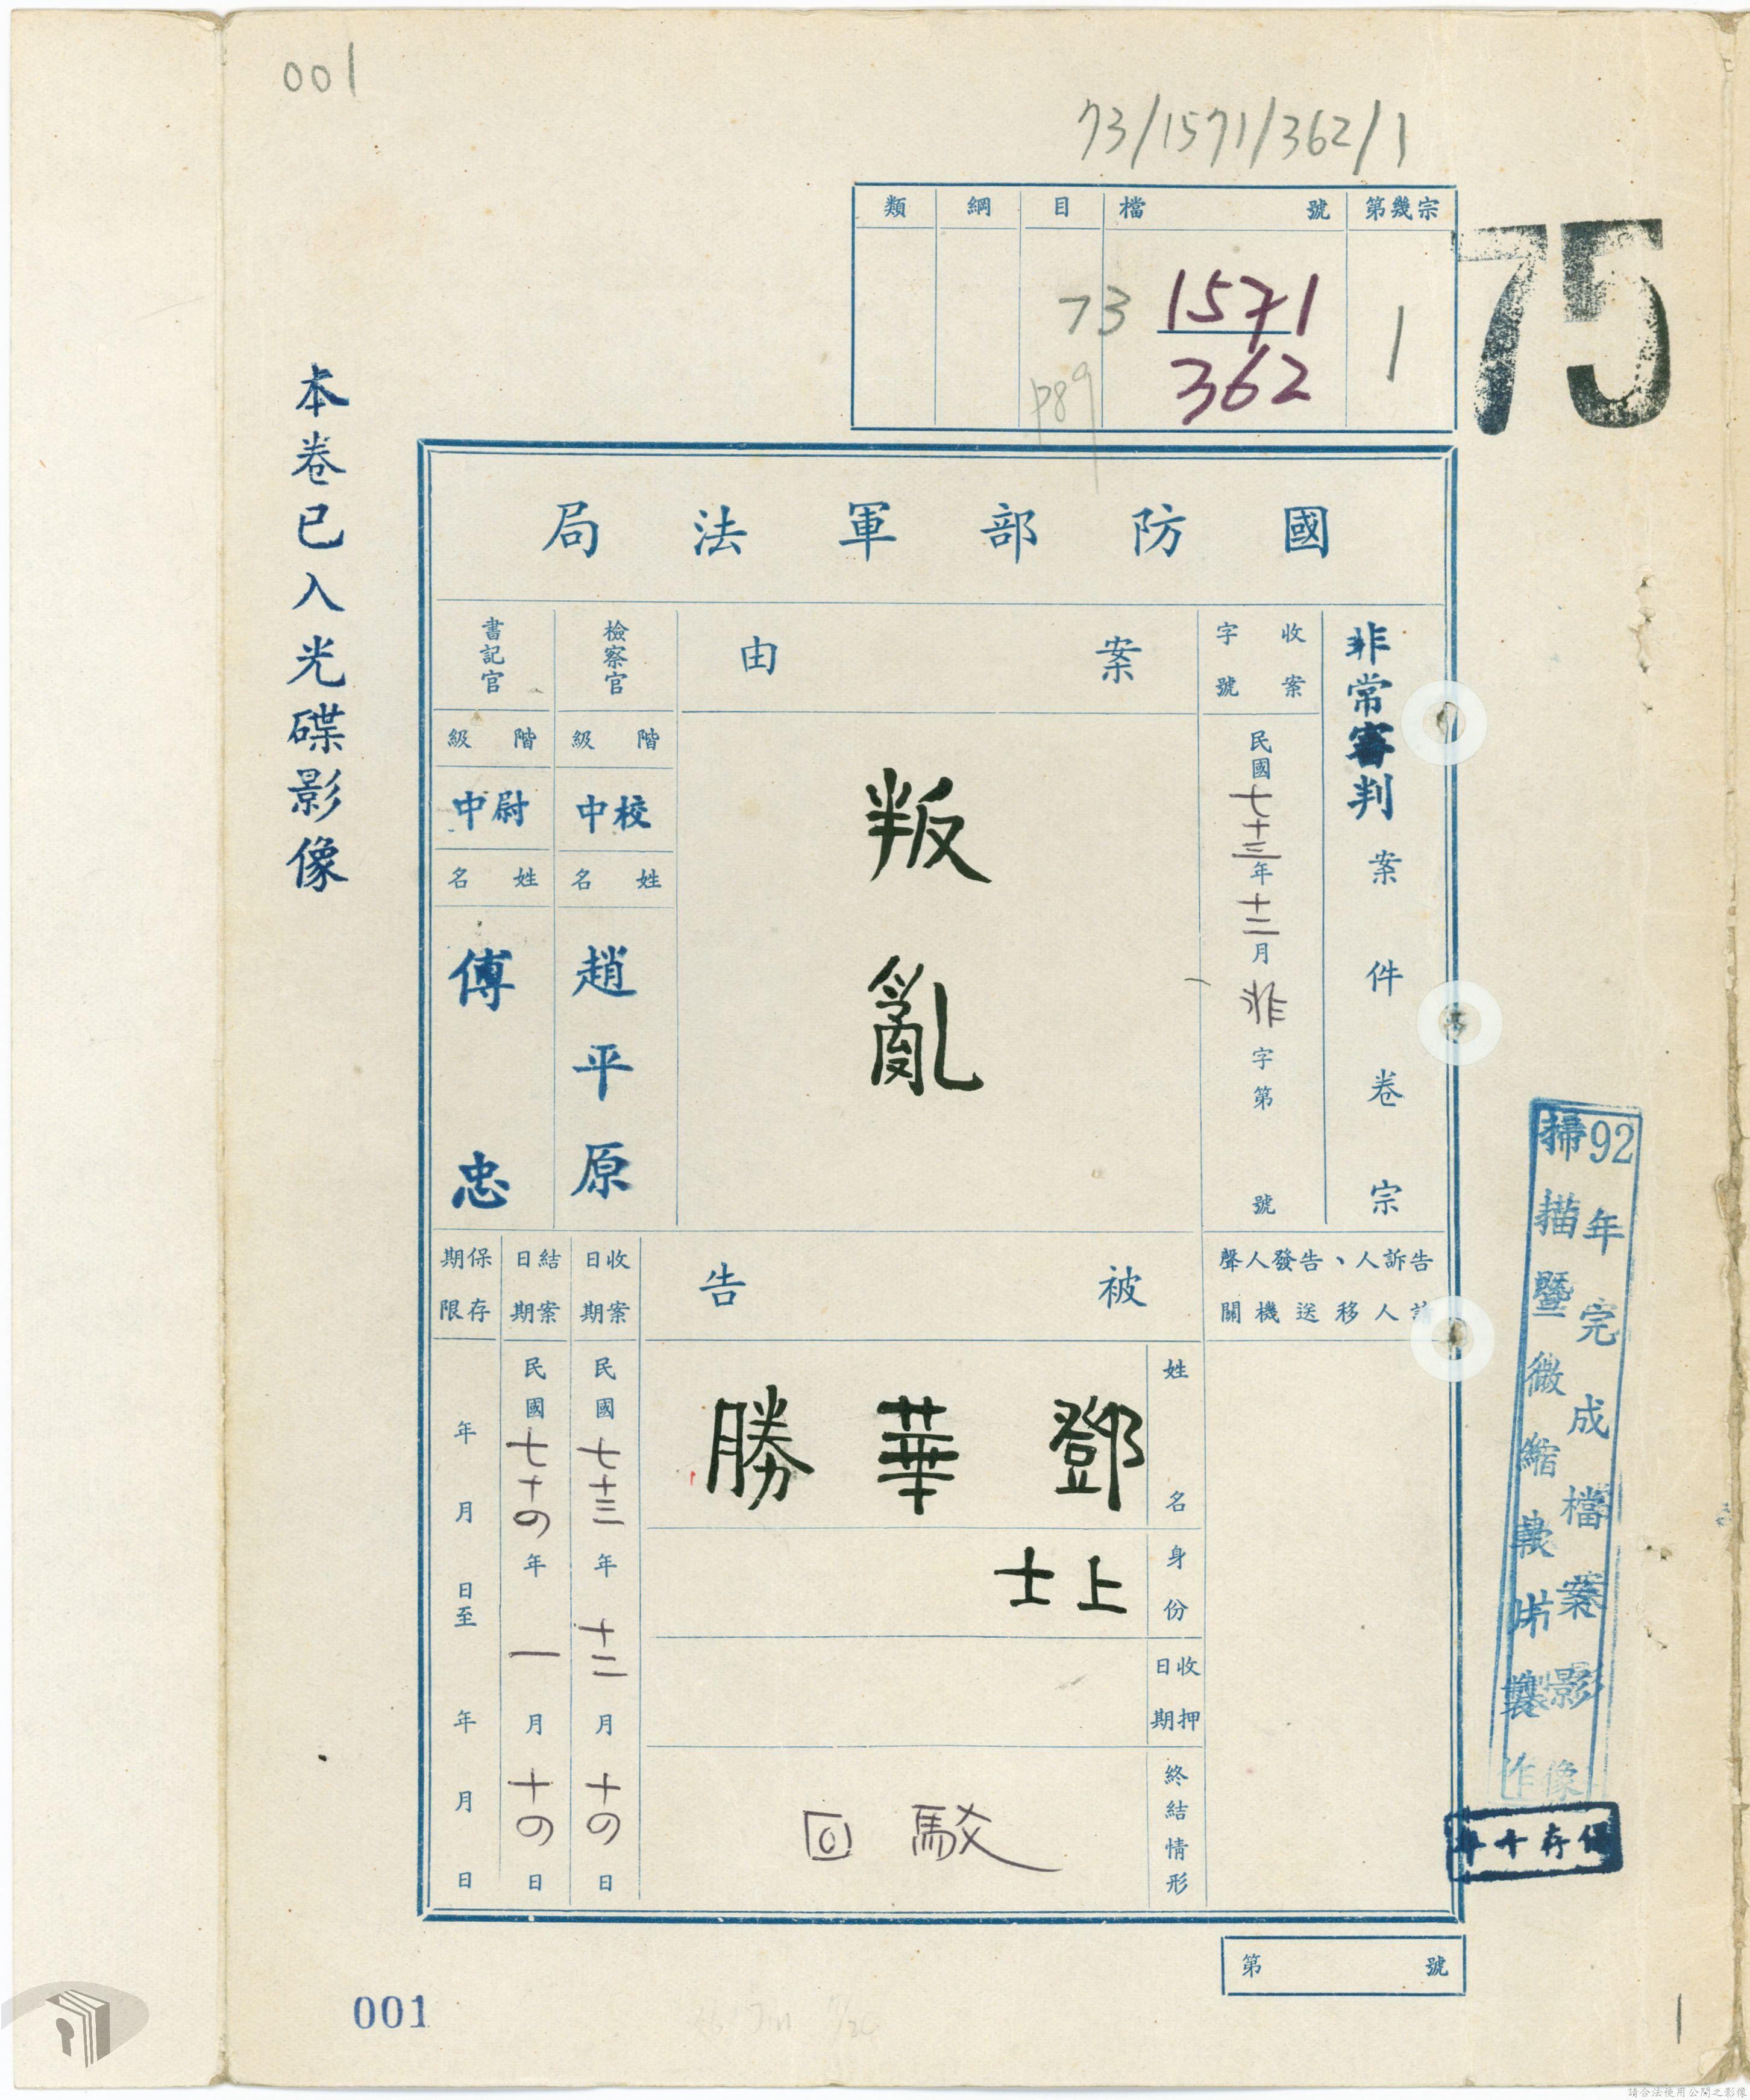 001
73/1571/362/1
第幾宗
檔號
目
綱
類
1
1571
362
73
p89
75
本卷已入光碟影像
國防部軍法局
非常審判案件卷宗
收案字號
民國七十三年十二月非字第號
案由
叛亂
檢察官
階級
中校
姓名
趙平原
書記官
階級
中尉
姓名
傅忠
告訴人、告發人聲請人移送機關
被告
姓名
鄧華勝
身份
上士
收押日期
終結情形
駁回
收案日期
民國七十三年十二月十四日
結案日期
民國七十四年一月十四日
保存期限
年月日至年月日
92年完成檔案影像
掃描暨微縮軟片製作
保存十年
第號
001
1
請合法使用公開之影像